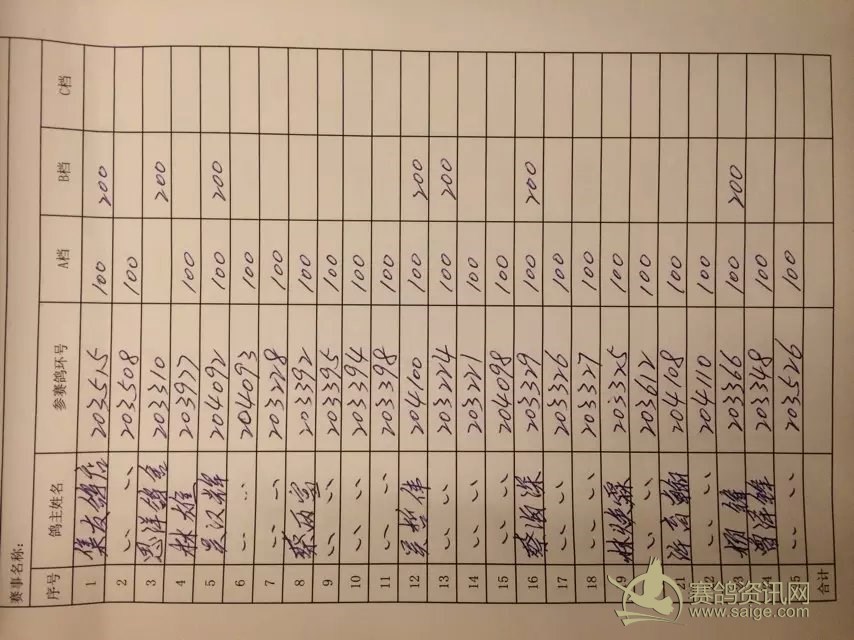 赛事名称：
序号 鸽主姓名 参赛鸽环号 A档 B档 C档
1 集友鸽店 203515 100 200
2 〃 203508 100
3 鸽舍 203310 200
4 林雄 203977 100
5 吴汉辉 204092 100 200
6 〃 204093 100
7 〃 203228 100
8 蔡 203392 100
9 〃 203395 100
10 〃 203394 100
11 〃 203398 100
12 吴哲伟 204100 100 200
13 〃 203224 100 200
14 〃 203221 100
15 〃 204098 100
16 蔡 203329 100 200
17 〃 203326 100
18 〃 203327 100
19 林焕霖 203325 100
〃 203612 100
21 许 204108 100
22 〃 204110 100
23 203366 100 200
24 203348 100
25 〃 203526 100
合计
赛鸽资讯网
www.saige.com